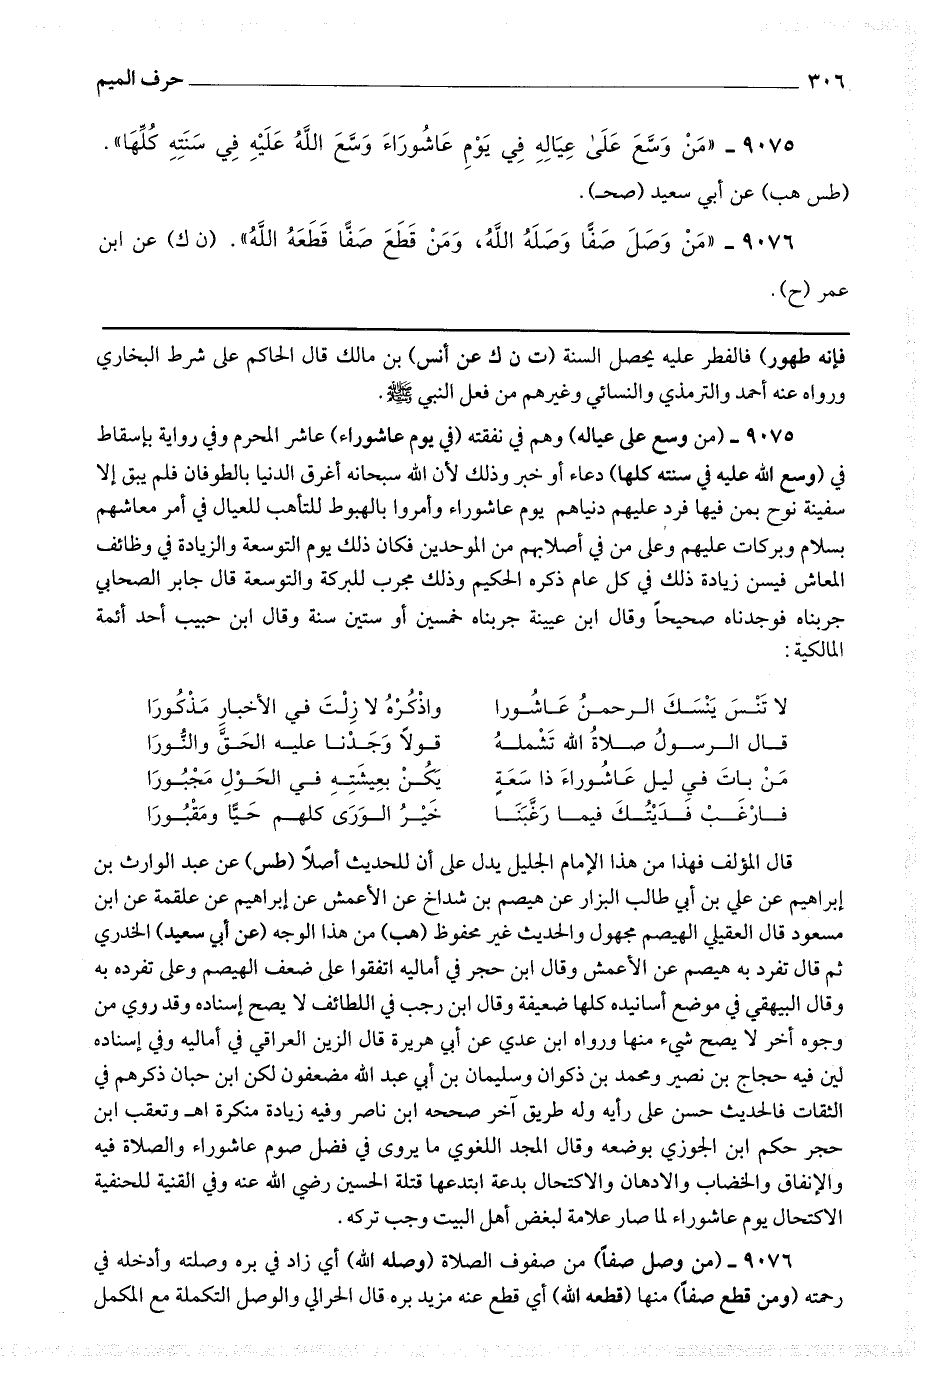 ٣٠٦ حرف الميم
٩٠٧٥ ـ «مَنْ وَسَّعَ عَلَىٰ عِيَالِهِ فِي يَوْمِ عَاشُورَاءَ وَسَّعَ اللَّهُ عَلَيْهِ فِي سَنَتِهِ كُلِّهَا».
(طس هب) عن أبي سعيد (صحـ).
٩٠٧٦ ـ «مَنْ وَصَلَ صَفًّا وَصَلَهُ اللَّهُ، وَمَنْ قَطَعَ صَفًّا قَطَعَهُ اللَّهُ». (ن ك) عن ابن
عمر (ح).
فإنه طهور) فالفطر عليه يحصل السنة (ت ن ك عن أنس) بن مالك قال الحاكم على شرط البخاري
ورواه عنه أحمد والترمذي والنسائي وغيرهم من فعل النبي ﷺ.
٩٠٧٥ ـ (من وسع على عياله) وهم في نفقته (في يوم عاشوراء) عاشر المحرم وفي رواية بإسقاط
في (وسع الله عليه في سنته كلها) دعاء أو خبر وذلك لأن الله سبحانه أغرق الدنيا بالطوفان فلم يبق إلا
سفينة نوح بمن فيها فرد عليهم دنياهم يوم عاشوراء وأمروا بالهبوط للتأهب للعيال في أمر معاشهم
بسلام وبركات عليهم وعلى من في أصلابهم من الموحدين فكان ذلك يوم التوسعة والزيادة في وظائف
المعاش فيسن زيادة ذلك في كل عام ذكره الحكيم وذلك مجرب للبركة والتوسعة قال جابر الصحابي
جربناه فوجدناه صحيحاً وقال ابن عيينة جربناه خمسين أو ستين سنة وقال ابن حبيب أحد أئمة
المالكية:
لا تَنْسَ يَنْسَكَ الرحمنُ عَاشُورا واذْكُرْهُ لا زِلْتَ في الأخبارِ مَذْكُورَا
قال الرسولُ صلاةُ الله تَشْملهُ قولاً وَجَدْنا عليه الحَقَّ والنُّورَا
مَنْ باتَ في ليل عَاشُوراءَ ذا سَعَةٍ يَكُنْ بعِيشَتِهِ في الحَوْلِ مَجْبُورَا
فارْغَبْ فَدَيْتُكَ فيما رَغَّبَنَا خَيْرُ الوَرَى كلهم حَيًّا ومَقْبُورَا
قال المؤلف فهذا من هذا الإمام الجليل يدل على أن للحديث أصلاً (طس) عن عبد الوارث بن
إبراهيم عن علي بن أبي طالب البزار عن هيصم بن شداخ عن الأعمش عن إبراهيم عن علقمة عن ابن
مسعود قال العقيلي الهيصم مجهول والحديث غير محفوظ (هب) من هذا الوجه (عن أبي سعيد) الخدري
ثم قال تفرد به هيصم عن الأعمش وقال ابن حجر في أماليه اتفقوا على ضعف الهيصم وعلى تفرده به
وقال البيهقي في موضع أسانيده كلها ضعيفة وقال ابن رجب في اللطائف لا يصح إسناده وقد روي من
وجوه أخر لا يصح شيء منها ورواه ابن عدي عن أبي هريرة قال الزين العراقي في أماليه وفي إسناده
لين فيه حجاج بن نصير ومحمد بن ذكوان وسليمان بن أبي عبد الله مضعفون لكن ابن حبان ذكرهم في
الثقات فالحديث حسن على رأيه وله طريق آخر صححه ابن ناصر وفيه زيادة منكرة اهـ وتعقب ابن
حجر حكم ابن الجوزي بوضعه وقال المجد اللغوي ما يروى في فضل صوم عاشوراء والصلاة فيه
والإنفاق والخضاب والادهان والاكتحال بدعة ابتدعها قتلة الحسين رضي الله عنه وفي القنية للحنفية
الاكتحال يوم عاشوراء لما صار علامة لبغض أهل البيت وجب تركه.
٩٠٧٦ ـ (من وصل صفاً) من صفوف الصلاة (وصله الله) أي زاد في بره وصلته وأدخله في
رحمته (ومن قطع صفاً) منها (قطعه الله) أي قطع عنه مزيد بره قال الحرالي والوصل التكملة مع المكمل